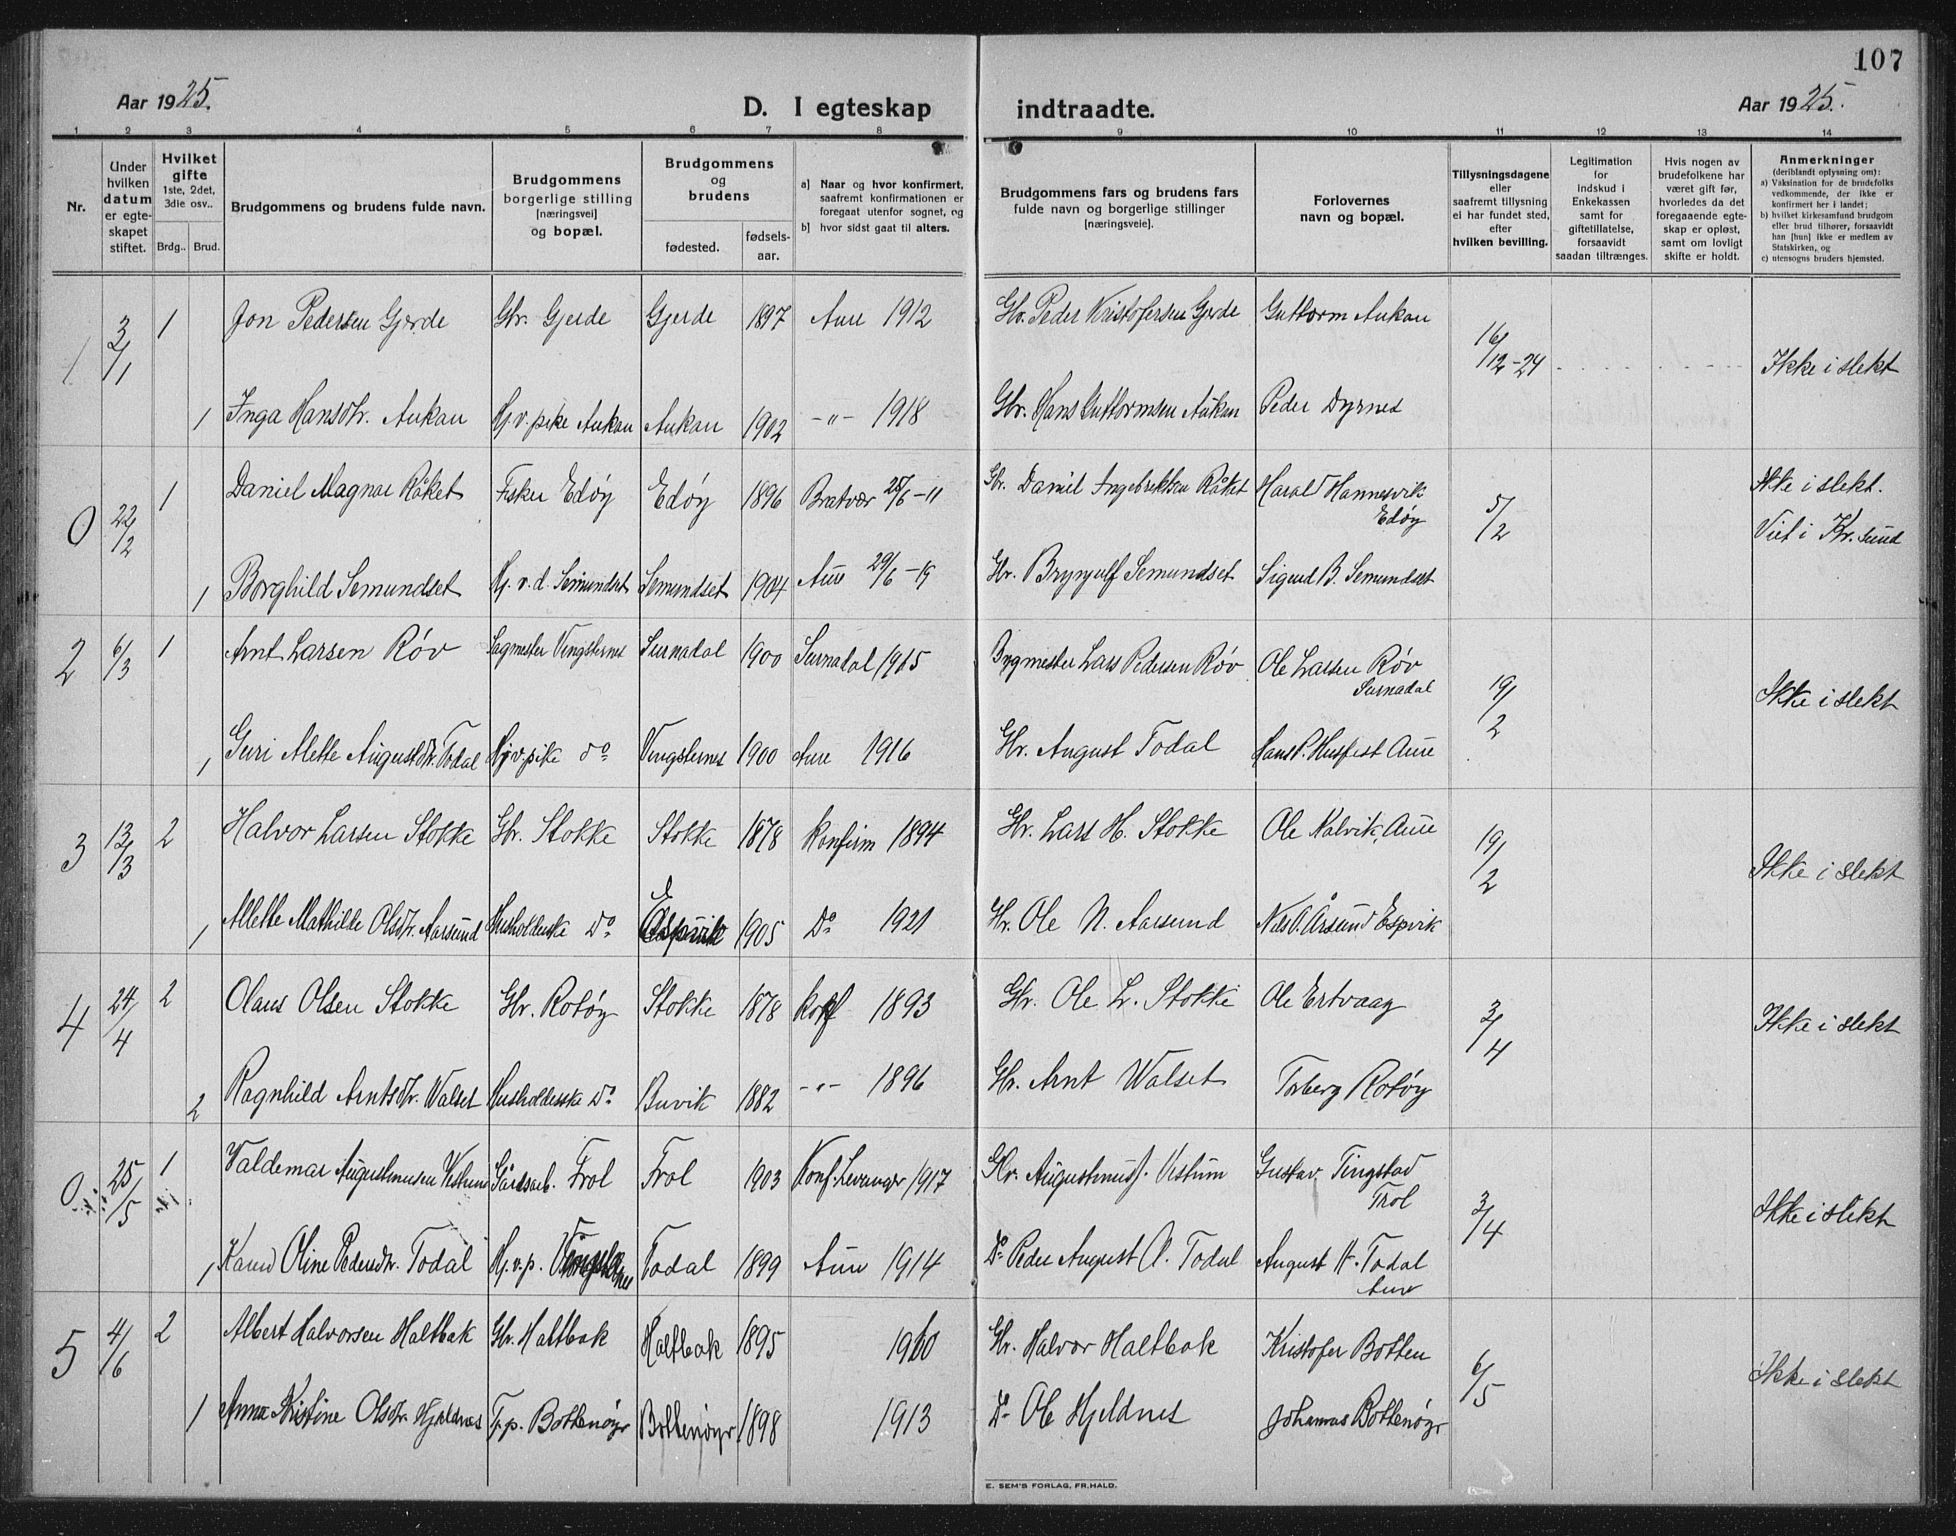 107
Aar 1925.
D. I egteskap indtraadte.
Aar 1925.
1 2 3 4 5 6 7 8 9 10 11 12 13 14
Nr.
Under hvilken datum er egteskapet stiftet.
Hvilket gifte 1ste, 2det, 3die osv..
Brdg.. Brud.
Brudgommens og brudens fulde navn.
Brudgommens borgerlige stilling [næringsvei] og bopæl.
Brudgommens og brudens
fødested.
fødsels-aar.
a] Naar og hvor konfirmert, saafremt konfirmationen er foregaat utenfor sognet, og
b] hvor sidst gaat til alters.
Brudgommens fars og brudens fars fulde navn og borgerlige stillinger [næringsveie].
Forlovernes navn og bopæl.
Tillysningsdagene eller saafremt tillysning ei har fundet sted, efter hvilken bevilling.
Legitimation for indskud i Enkekassen samt for giftetillatelse, forsaavidt saadan tiltrænges.
Hvis nogen av brudefolkene har været gift før, hvorledes da det foregaaende egteskap er opløst, samt om lovligt skifte er holdt.
Anmerkninger (deriblandt oplysning om):
a) Vaksination for de brudefolks vedkommende, der ikke er konfirmert her i landet;
b) hvilket kirkesamfund brudgom eller brud tilhører, forsaavidt han [hun] ikke er medlem av Statskirken, og
c) utensogns bruders hjemsted.
1 3/1 1 Jon Pedersen Gjerde Gbr. Gjerde Gjerde 1897 Aure 1912 Gbr. Peder Kristofersen Gjerde Guttorm Aukan 16/12-24 Ikke i slekt
1 Inga Hansdtr. Aukan Hj.v. pike Aukan Aukan 1902 -"- 1918 Gbr. Hans Guttormsen Aukan Peder Dyrnes
0 22/2 1 Daniel Magnar Råket Fisker Edøy Edøy 1896 Bratvær 25/6-11 Gbr. Daniel Ingebriktsen Råket Harald Hannesvik Edøy 5/2 Ikke i slekt. Viet i Kr.sund
1 Borghild Semundset Hj.v.d. Semundset Semundset 1904 Aure 29/6-19 Gbr. Brynjulf Semundset Sigurd B. Semundset
2 6/3 1 Arnt Larsen Røv Sagmester Vingsternes Surnadal 1900 Surnadal 1915 Bygmester Lars Pedersen Røv Ole Larsen Røv Surnadal 19/2 Ikke i slekt
1 Guri Alette Augustdtr. Todal Hj.v. pike do Vingsternes 1900 Aure 1916 Gbr. August Todal Hans P. Husfest Aure
3 13/3 2 Halvor Larsen Stokke Gbr. Stokke Stokke 1878 Konfirm 1894 Gbr. Lars H. Stokke Ole Kalvik, Aure 19/2 Ikke i slekt
1 Allette Mathilde Olsdtr. Aarsund Husholderske Do Espvik 1905 Do 1921 Gbr. Ole N. Aarsund Nils O. Årsund Espvik
4 24/4 2 Olaus Olsen Stokke Gbr. Rotøy Stokke 1878 Konf 1893 Gbr. Ole L. Stokke Ole Ertvaag 3/4 Ikke i slekt
2 Ragnhild Arntsdtr. Walset Husholderske Do Buvik 1882 -"- 1896 Gbr. Arnt Walset Torberg Rotøy
0 25/5 1 Valdemar Augustinusen Vistum Gårdsarb. Frol Frol 1903 Konf. Levanger 1917 Gbr. Augustinus J. Vistum Gustav Tingstad Frol 3/4 Ikke i slekt
1 Karen Oline Pedersdtr. Todal Hj.v.p. Vingsternes Todal 1899 Aure 1914 Do Peder August A. Todal August A. Todal Aure
5 4/6 2 Albert Halvorsen Haltbak Gbr. Haltbak Haltbak 1895 1910 Gbr. Halvor Haltbak Kristofer Botten 6/5 Ikke i slekt
1 Anna Kristine Olsdtr. Hjeldnes T.p. Bottenøyr Bottenøyr 1898 1913 Do Ole Hjeldnes Johannes Bottenøyr
E. SEM'S FORLAG, FR.HALD.